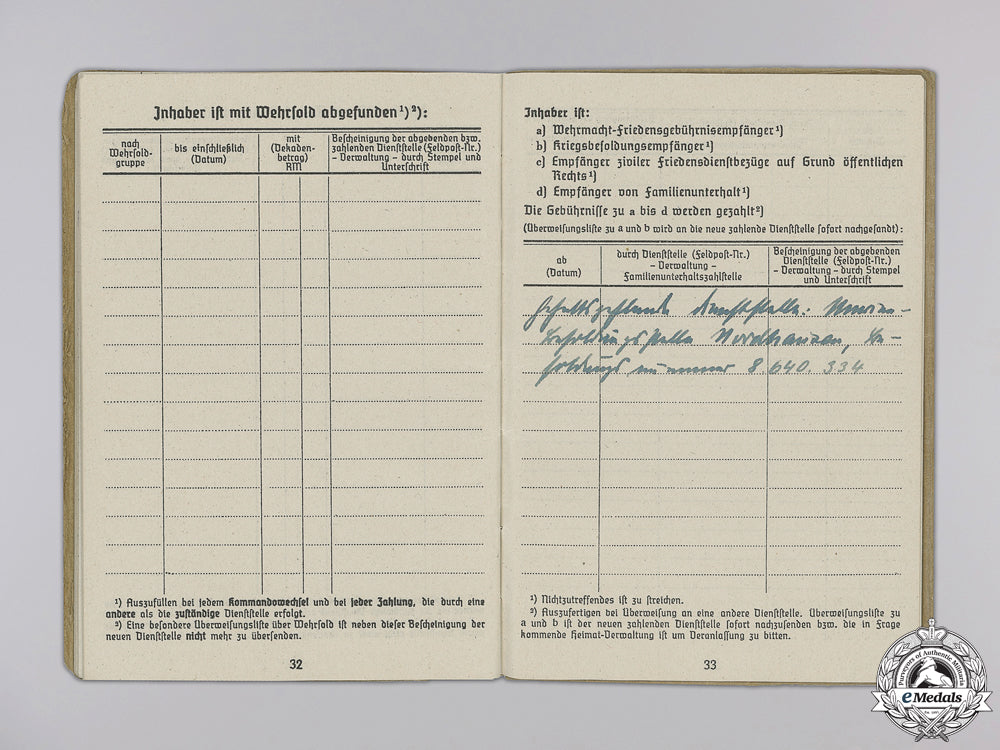 Inhaber ist mit Wehrsold abgefunden¹)²):
nach
Wehrsold-
gruppe
bis einschließlich
(Datum)
mit
(Dekaden-
betrag)
RM
Bescheinigung der abgebenden bzw.
zahlenden Dienststelle (Feldpost-Nr.)
– Verwaltung – durch Stempel und
Unterschrift
¹) Auszufüllen bei jedem Kommandowechsel und bei jeder Zahlung, die durch eine
andere als die zuständige Dienststelle erfolgt.
²) Eine besondere Überweisungsliste über Wehrsold ist neben dieser Bescheinigung der
neuen Dienststelle nicht mehr zu übersenden.
32
Inhaber ist:
a) Wehrmacht-Friedensgebührnisempfänger¹)
b) Kriegsbesoldungsempfänger¹)
c) Empfänger ziviler Friedensdienstbezüge auf Grund öffentlichen
Rechts¹)
d) Empfänger von Familienunterhalt¹)
Die Gebührnisse zu a bis d werden gezahlt²)
(Überweisungsliste zu a und b wird an die neue zahlende Dienststelle sofort nachgesandt):
ab
(Datum)
durch Dienststelle (Feldpost-Nr.)
– Verwaltung –
Familienunterhaltszahlstelle
Bescheinigung der abgebenden
Dienststelle (Feldpost-Nr.)
– Verwaltung – durch Stempel
und Unterschrift
Gehaltszahlende Dienststelle: Marine-
besoldungsstelle Nordhausen, Be-
soldungsnummer 8 640. 334
¹) Nichtzutreffendes ist zu streichen.
²) Auszufertigen bei Überweisung an eine andere Dienststelle. Überweisungsliste zu
a und b ist der neuen zahlenden Dienststelle sofort nachzusenden bzw. die in Frage
kommende Heimat-Verwaltung ist um Veranlassung zu bitten.
33
Purveyors of Authentic Militaria
eMedals